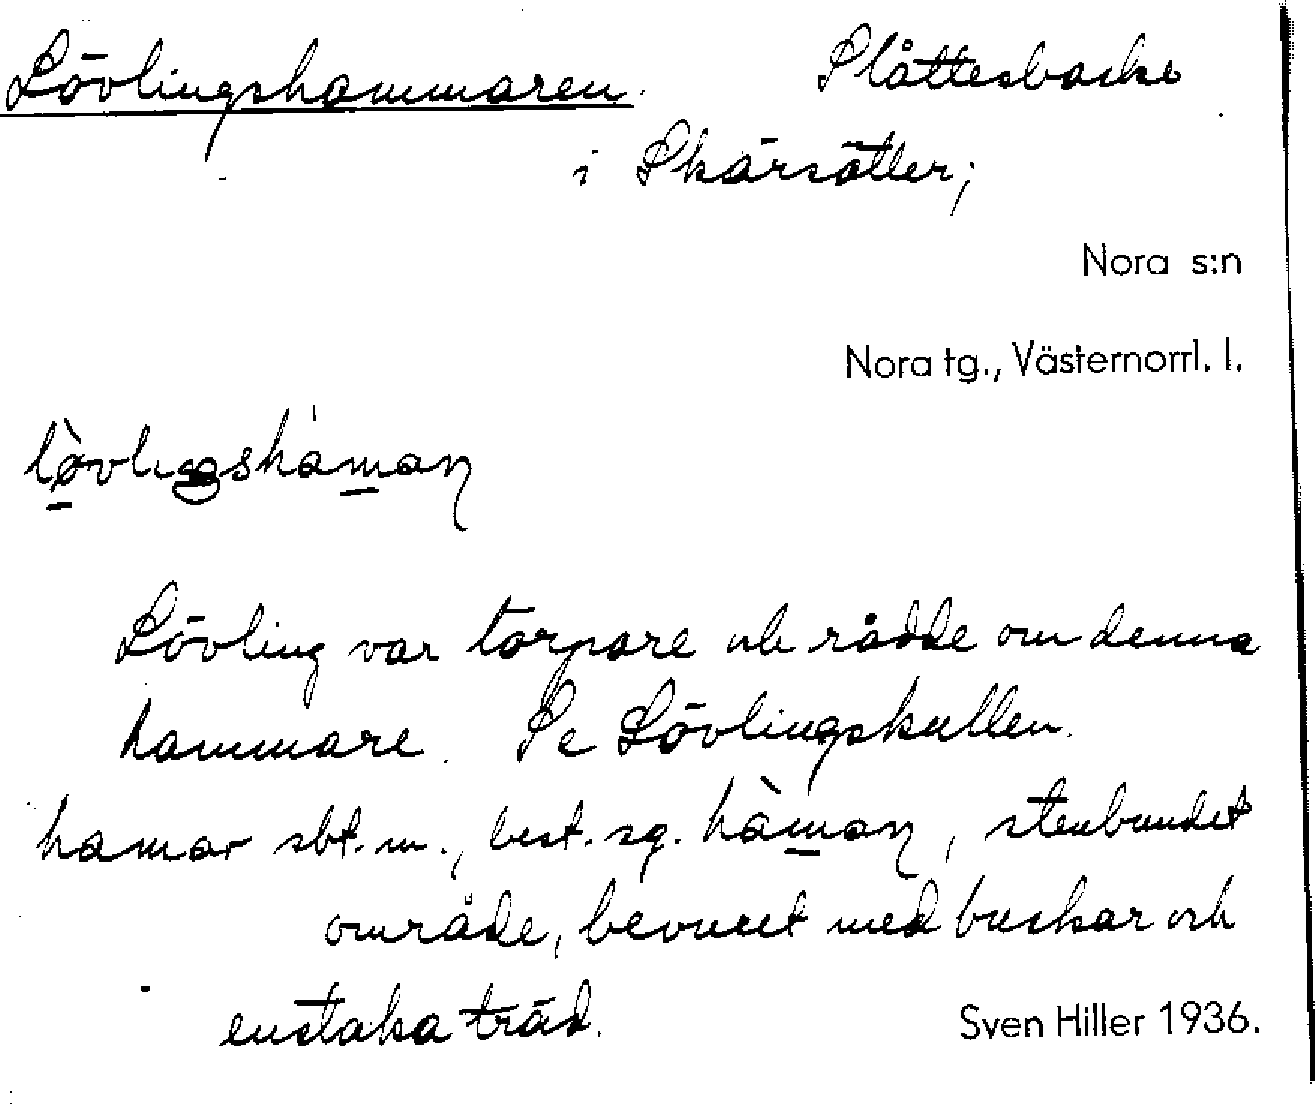 Lövlingshammaren. Slåttesbacke
i Skärsätter;
Nora s:n
Nora tg., Västernorrl. l.
Lövling var torpare och rådde om denna
hammare. Se Lövlingskullen.
hamar sbt. m., best. sg. hàman, stenbundet
område, bevuxet med buskar och
enstaka träd.
Sven Hiller 1936.